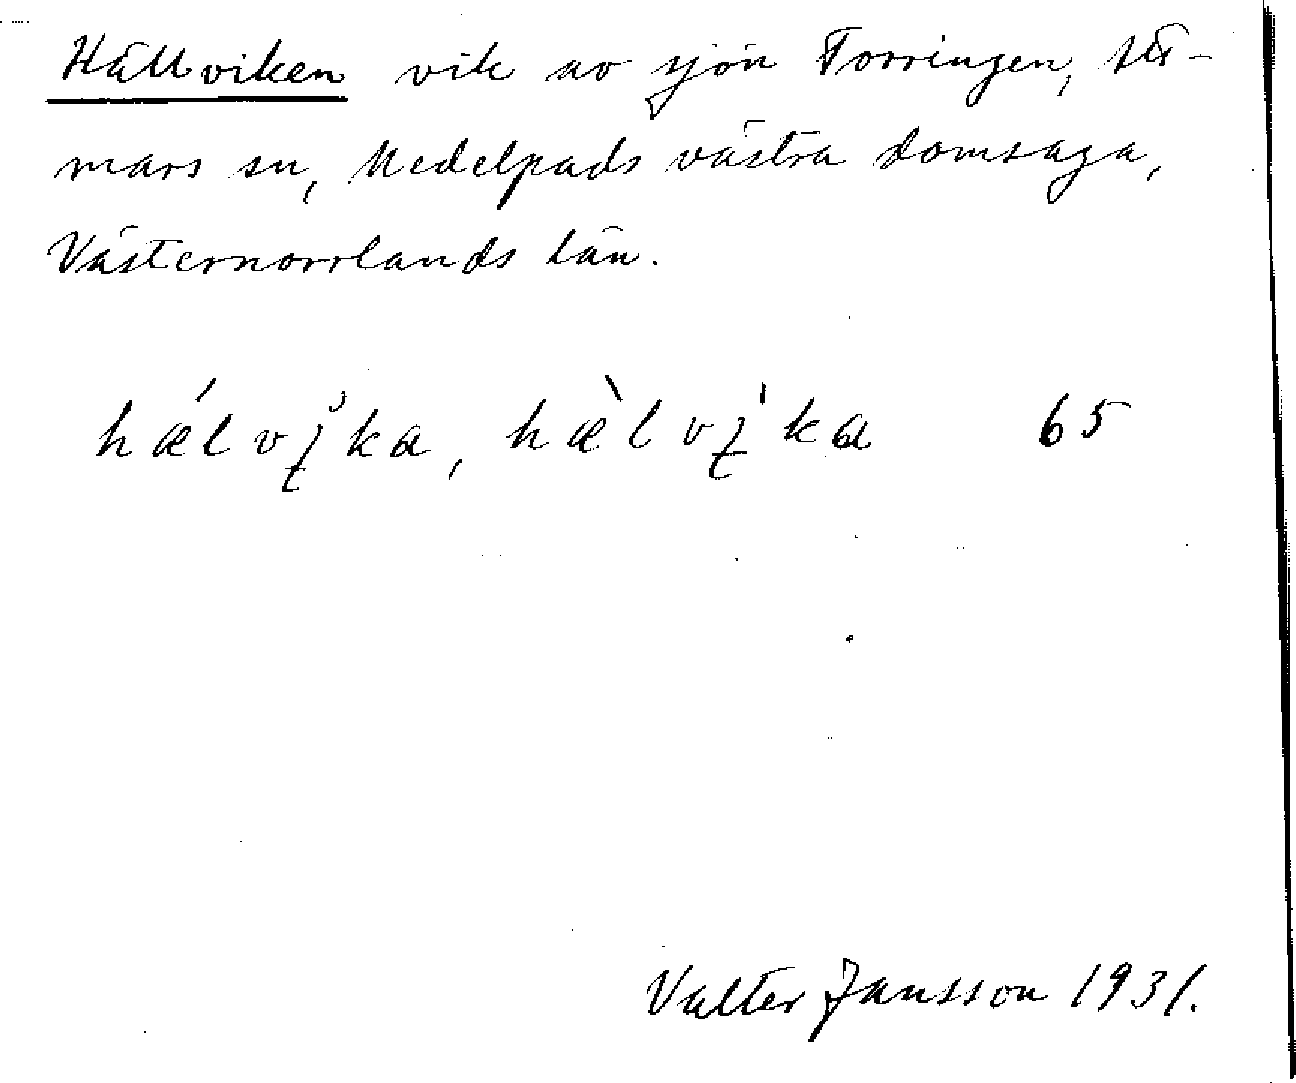 Hällviken vik av sjön Torringen, Att-
mars sn, Medelpads västra domsaga,
Västernorrlands län.
hǽlvi̡ka, hæ̀lvi̡ka 65
Valter Jansson 1931.